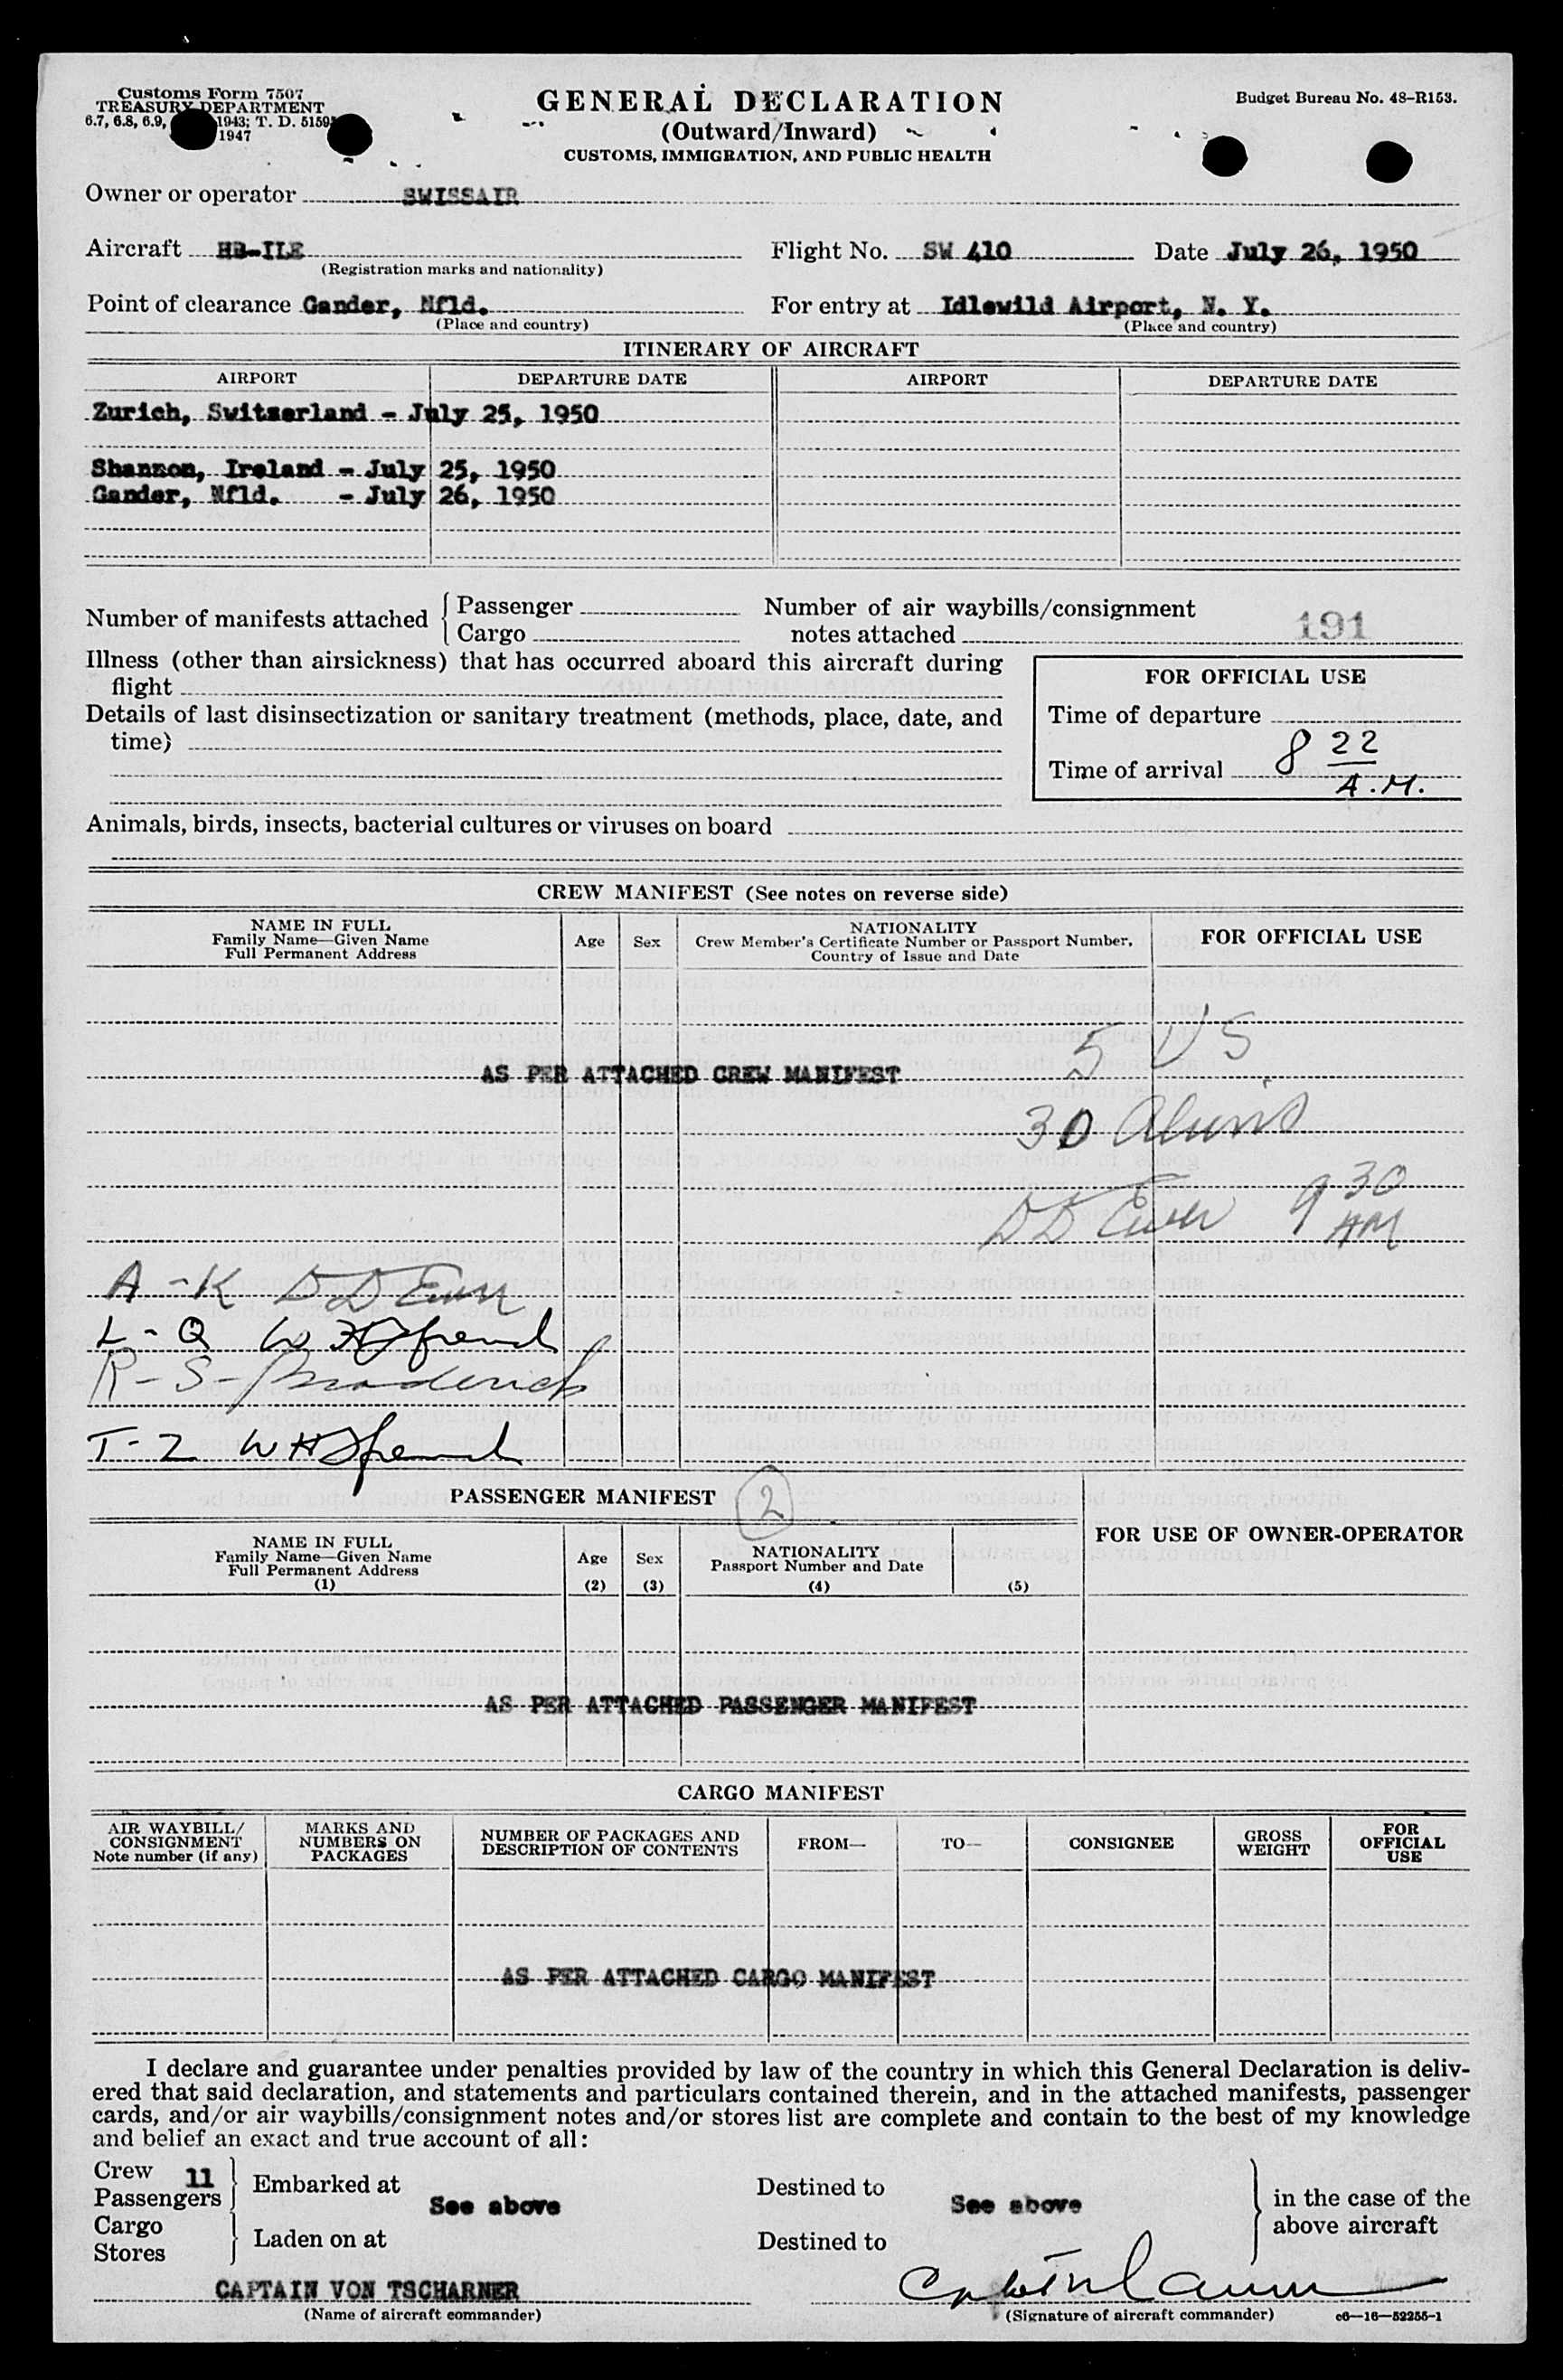 Customs Form 7507
TREASURY DEPARTMENT
6.7, 6.8, 6.9, 1943; T. D. 5159
1947
GENERAL DECLARATION
(Outward/Inward)
CUSTOMS, IMMIGRATION, AND PUBLIC HEALTH
Budget Bureau No. 48-R153.
Owner or operator SWISSAIR
Aircraft HB-ILE Flight No. SW 410 Date July 26, 1950
(Registration marks and nationality)
Point of clearance Gander, Nfld. For entry at Idlewild Airport, N. Y.
(Place and country) (Place and country)
ITINERARY OF AIRCRAFT
AIRPORT DEPARTURE DATE AIRPORT DEPARTURE DATE
Zurich, Switzerland - July 25, 1950
Shannon, Ireland - July 25, 1950
Gander, Nfld. - July 26, 1950
Number of manifests attached { Passenger
Cargo
Number of air waybills/consignment
notes attached 191
Illness (other than airsickness) that has occurred aboard this aircraft during
flight
Details of last disinsectization or sanitary treatment (methods, place, date, and
time)
FOR OFFICIAL USE
Time of departure
Time of arrival 8 22
A.M.
Animals, birds, insects, bacterial cultures or viruses on board
CREW MANIFEST (See notes on reverse side)
NAME IN FULL
Family Name—Given Name
Full Permanent Address
Age
Sex
NATIONALITY
Crew Member's Certificate Number or Passport Number,
Country of Issue and Date
FOR OFFICIAL USE
5 US
AS PER ATTACHED CREW MANIFEST
30 Aliens
DD 9 30
AM
A - K DD
L - Q W
R - S - Broderick
T - Z WH
PASSENGER MANIFEST 2
NAME IN FULL
Family Name—Given Name
Full Permanent Address
(1)
Age
(2)
Sex
(3)
NATIONALITY
Passport Number and Date
(4)
(5)
FOR USE OF OWNER-OPERATOR
AS PER ATTACHED PASSENGER MANIFEST
CARGO MANIFEST
AIR WAYBILL/
CONSIGNMENT
Note number (if any)
MARKS AND
NUMBERS ON
PACKAGES
NUMBER OF PACKAGES AND
DESCRIPTION OF CONTENTS
FROM—
TO—
CONSIGNEE
GROSS
WEIGHT
FOR
OFFICIAL
USE
AS PER ATTACHED CARGO MANIFEST
I declare and guarantee under penalties provided by law of the country in which this General Declaration is deliv-
ered that said declaration, and statements and particulars contained therein, and in the attached manifests, passenger
cards, and/or air waybills/consignment notes and/or stores list are complete and contain to the best of my knowledge
and belief an exact and true account of all:
Crew 11
Passengers
Embarked at See above
Destined to See above
Cargo
Stores
Laden on at
Destined to
in the case of the
above aircraft
CAPTAIN VON TSCHARNER
(Name of aircraft commander)
(Signature of aircraft commander) c6—16—52255-1